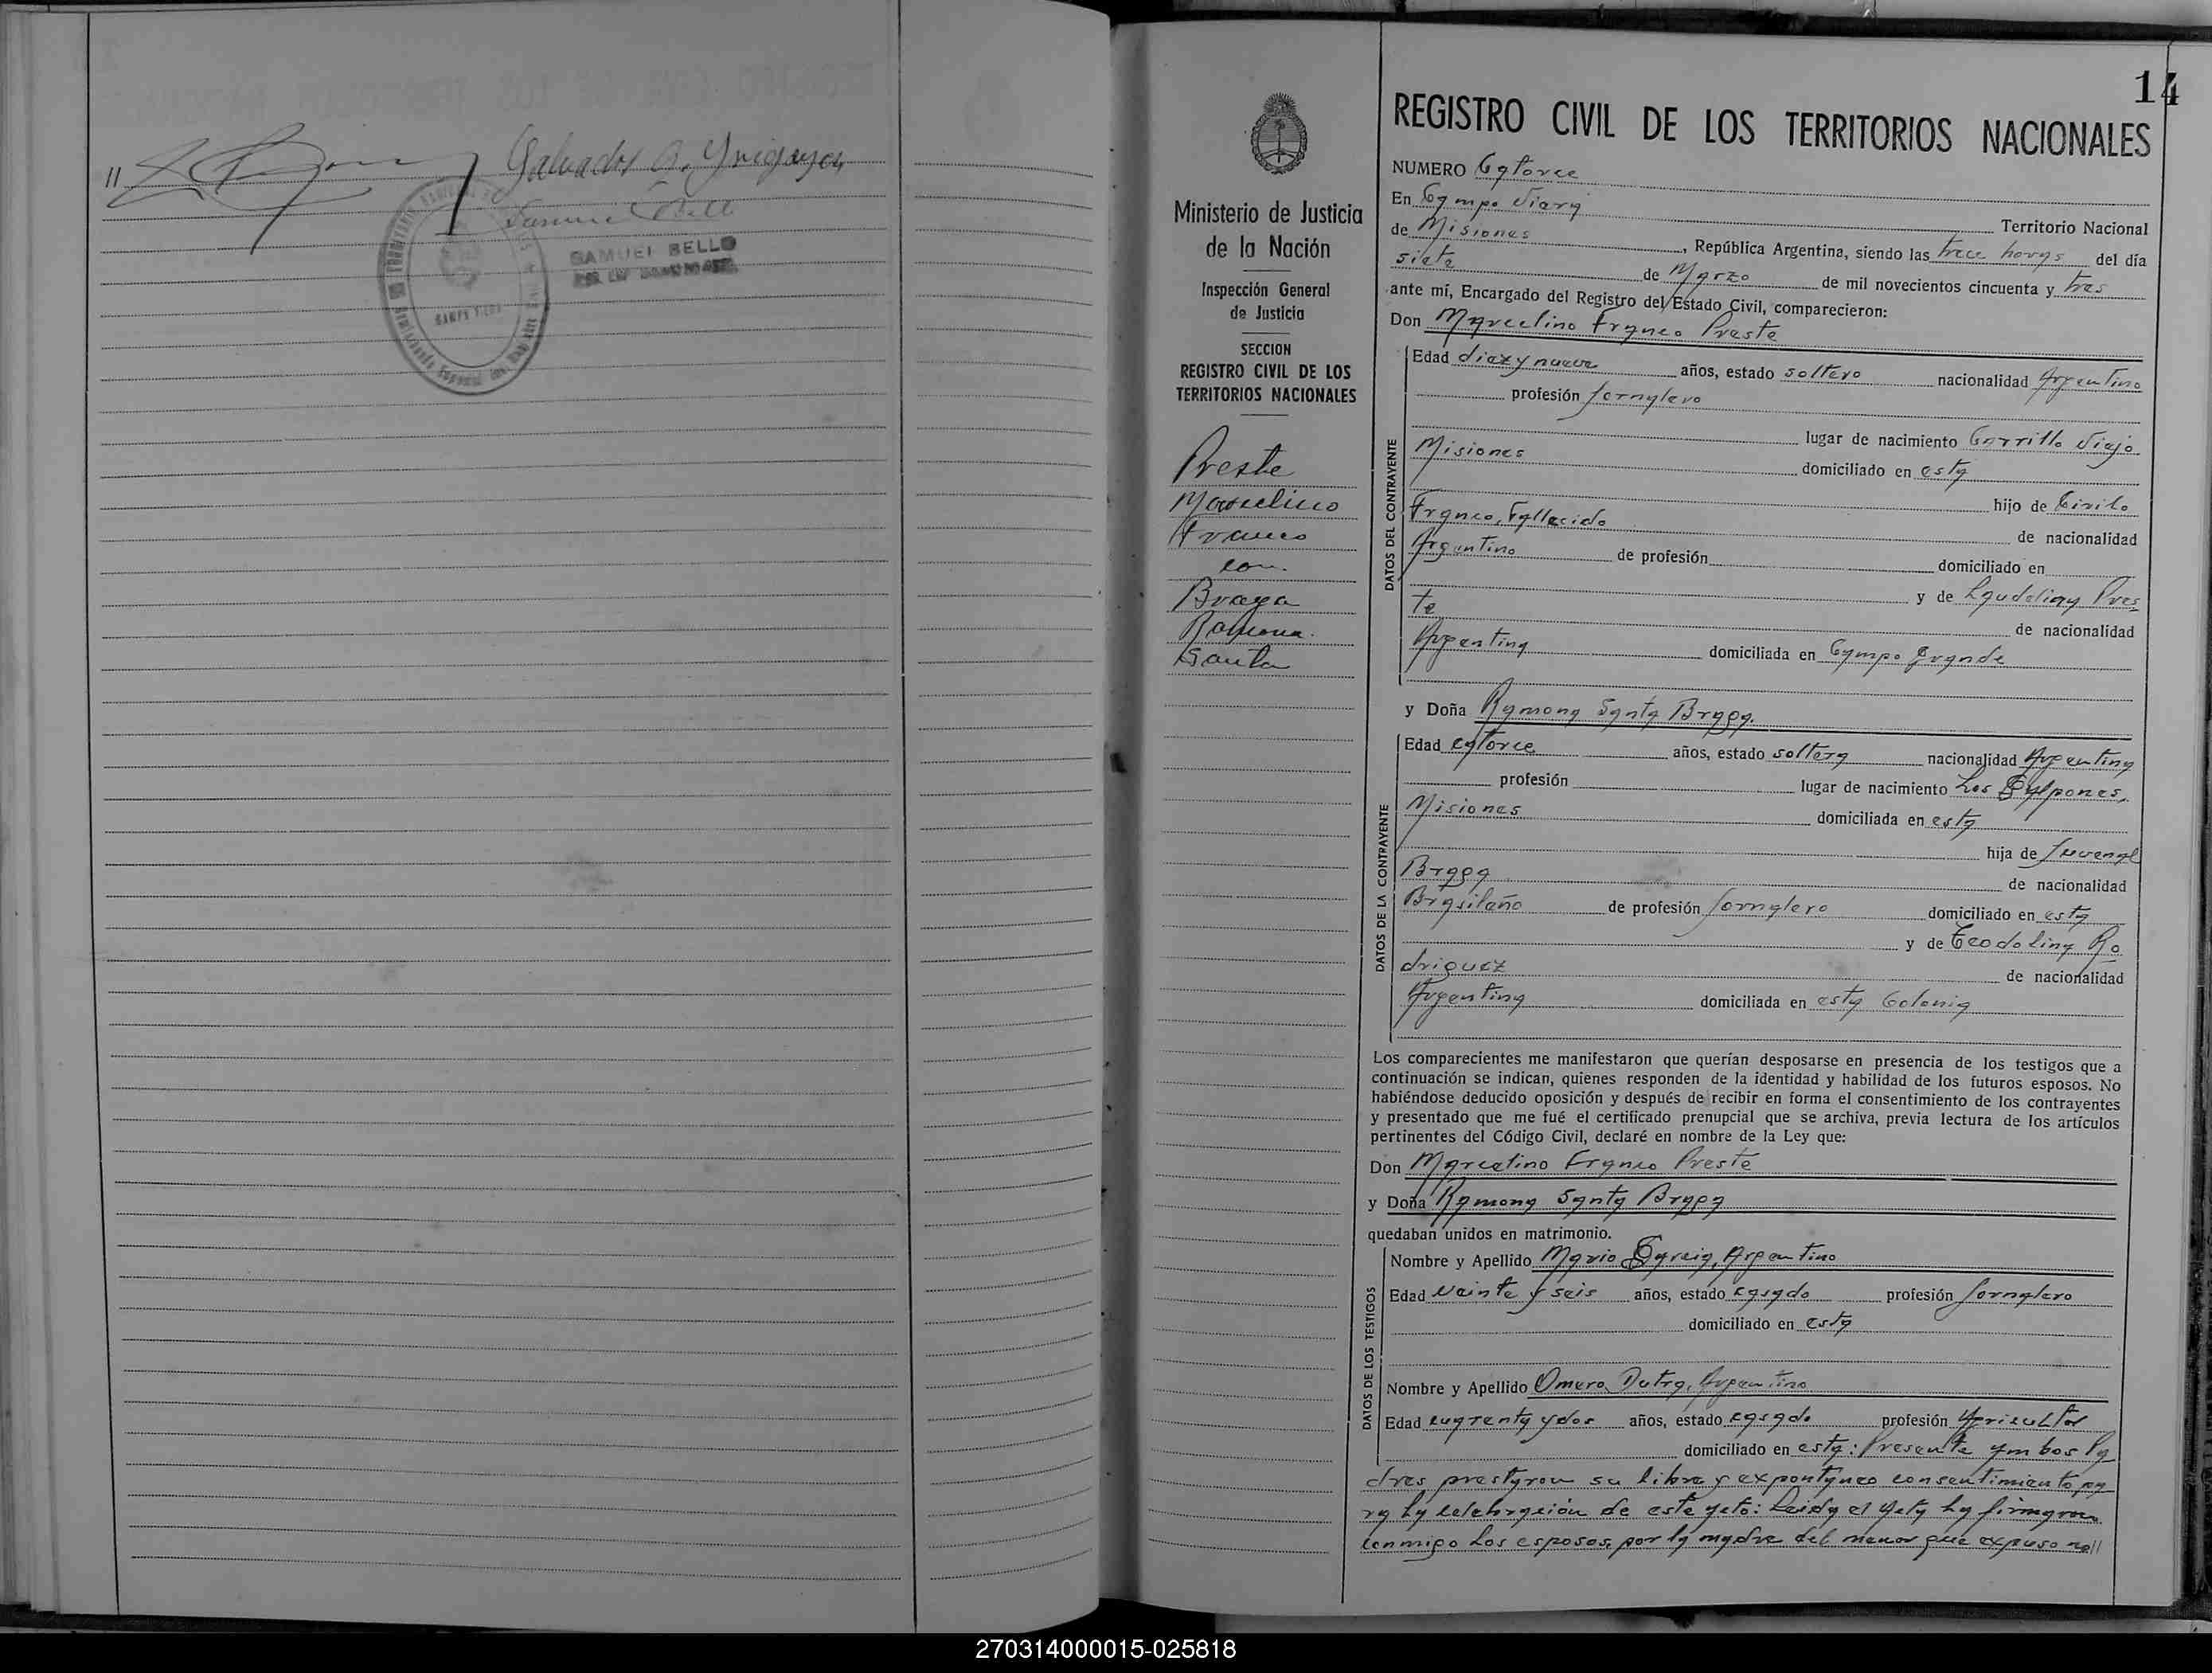 Salvador A.
Samuel Bello
SAMUEL BELLO
14
Ministerio de Justicia
de la Nación
Inspección General
de Justicia
SECCION
REGISTRO CIVIL DE LOS
TERRITORIOS NACIONALES
Preste
Marcelino
Franco
con
Braga
Ramona
Santa
REGISTRO CIVIL DE LOS TERRITORIOS NACIONALES
NUMERO Catorce
En Campo Viera Territorio Nacional
de Misiones, República Argentina, siendo las trece horas del día
siete de Marzo de mil novecientos cincuenta y tres
ante mí, Encargado del Registro del Estado Civil, comparecieron:
Don Marcelino Franco Preste
DATOS DEL CONTRAYENTE
Edad diez y nueve años, estado soltero nacionalidad Argentino
profesión Jornalero
lugar de nacimiento Cerrito Viejo
Misiones domiciliado en esta
hijo de Cirilo
Franco, Fallecido de nacionalidad
Argentino de profesión domiciliado en
y de Laudelina Pres
te de nacionalidad
Argentina domiciliada en Campo Grande
y Doña Ramona Santa Braga.
DATOS DE LA CONTRAYENTE
Edad catorce años, estado soltera nacionalidad Argentina
profesión lugar de nacimiento Los Galpones,
Misiones domiciliada en esta
hija de Juvenal
Braga de nacionalidad
Brasilaño de profesión Jornalero domiciliado en esta
y de Teodolina Ro
driguez de nacionalidad
Argentina domiciliada en esta Colonia
Los comparecientes me manifestaron que querían desposarse en presencia de los testigos que a
continuación se indican, quienes responden de la identidad y habilidad de los futuros esposos. No
habiéndose deducido oposición y después de recibir en forma el consentimiento de los contrayentes
y presentado que me fué el certificado prenupcial que se archiva, previa lectura de los artículos
pertinentes del Código Civil, declaré en nombre de la Ley que:
Don Marcelino Franco Preste
y Doña Ramona Santa Braga
quedaban unidos en matrimonio.
DATOS DE LOS TESTIGOS
Nombre y Apellido Mario Garcia, Argentino
Edad veinte y seis años, estado casado profesión Jornalero
domiciliado en esta
Nombre y Apellido Omero Dutra, Argentino
Edad cuarenta y dos años, estado casado profesión Agricultor
domiciliado en esta: Presente ambos Pa
dres prestaron su libre y expontaneo consentimiento pa
ra la celebración de este acto: Leida el Acta la firmaron
conmigo los esposos, por la madre del menor que expuso no//
270314000015-025818